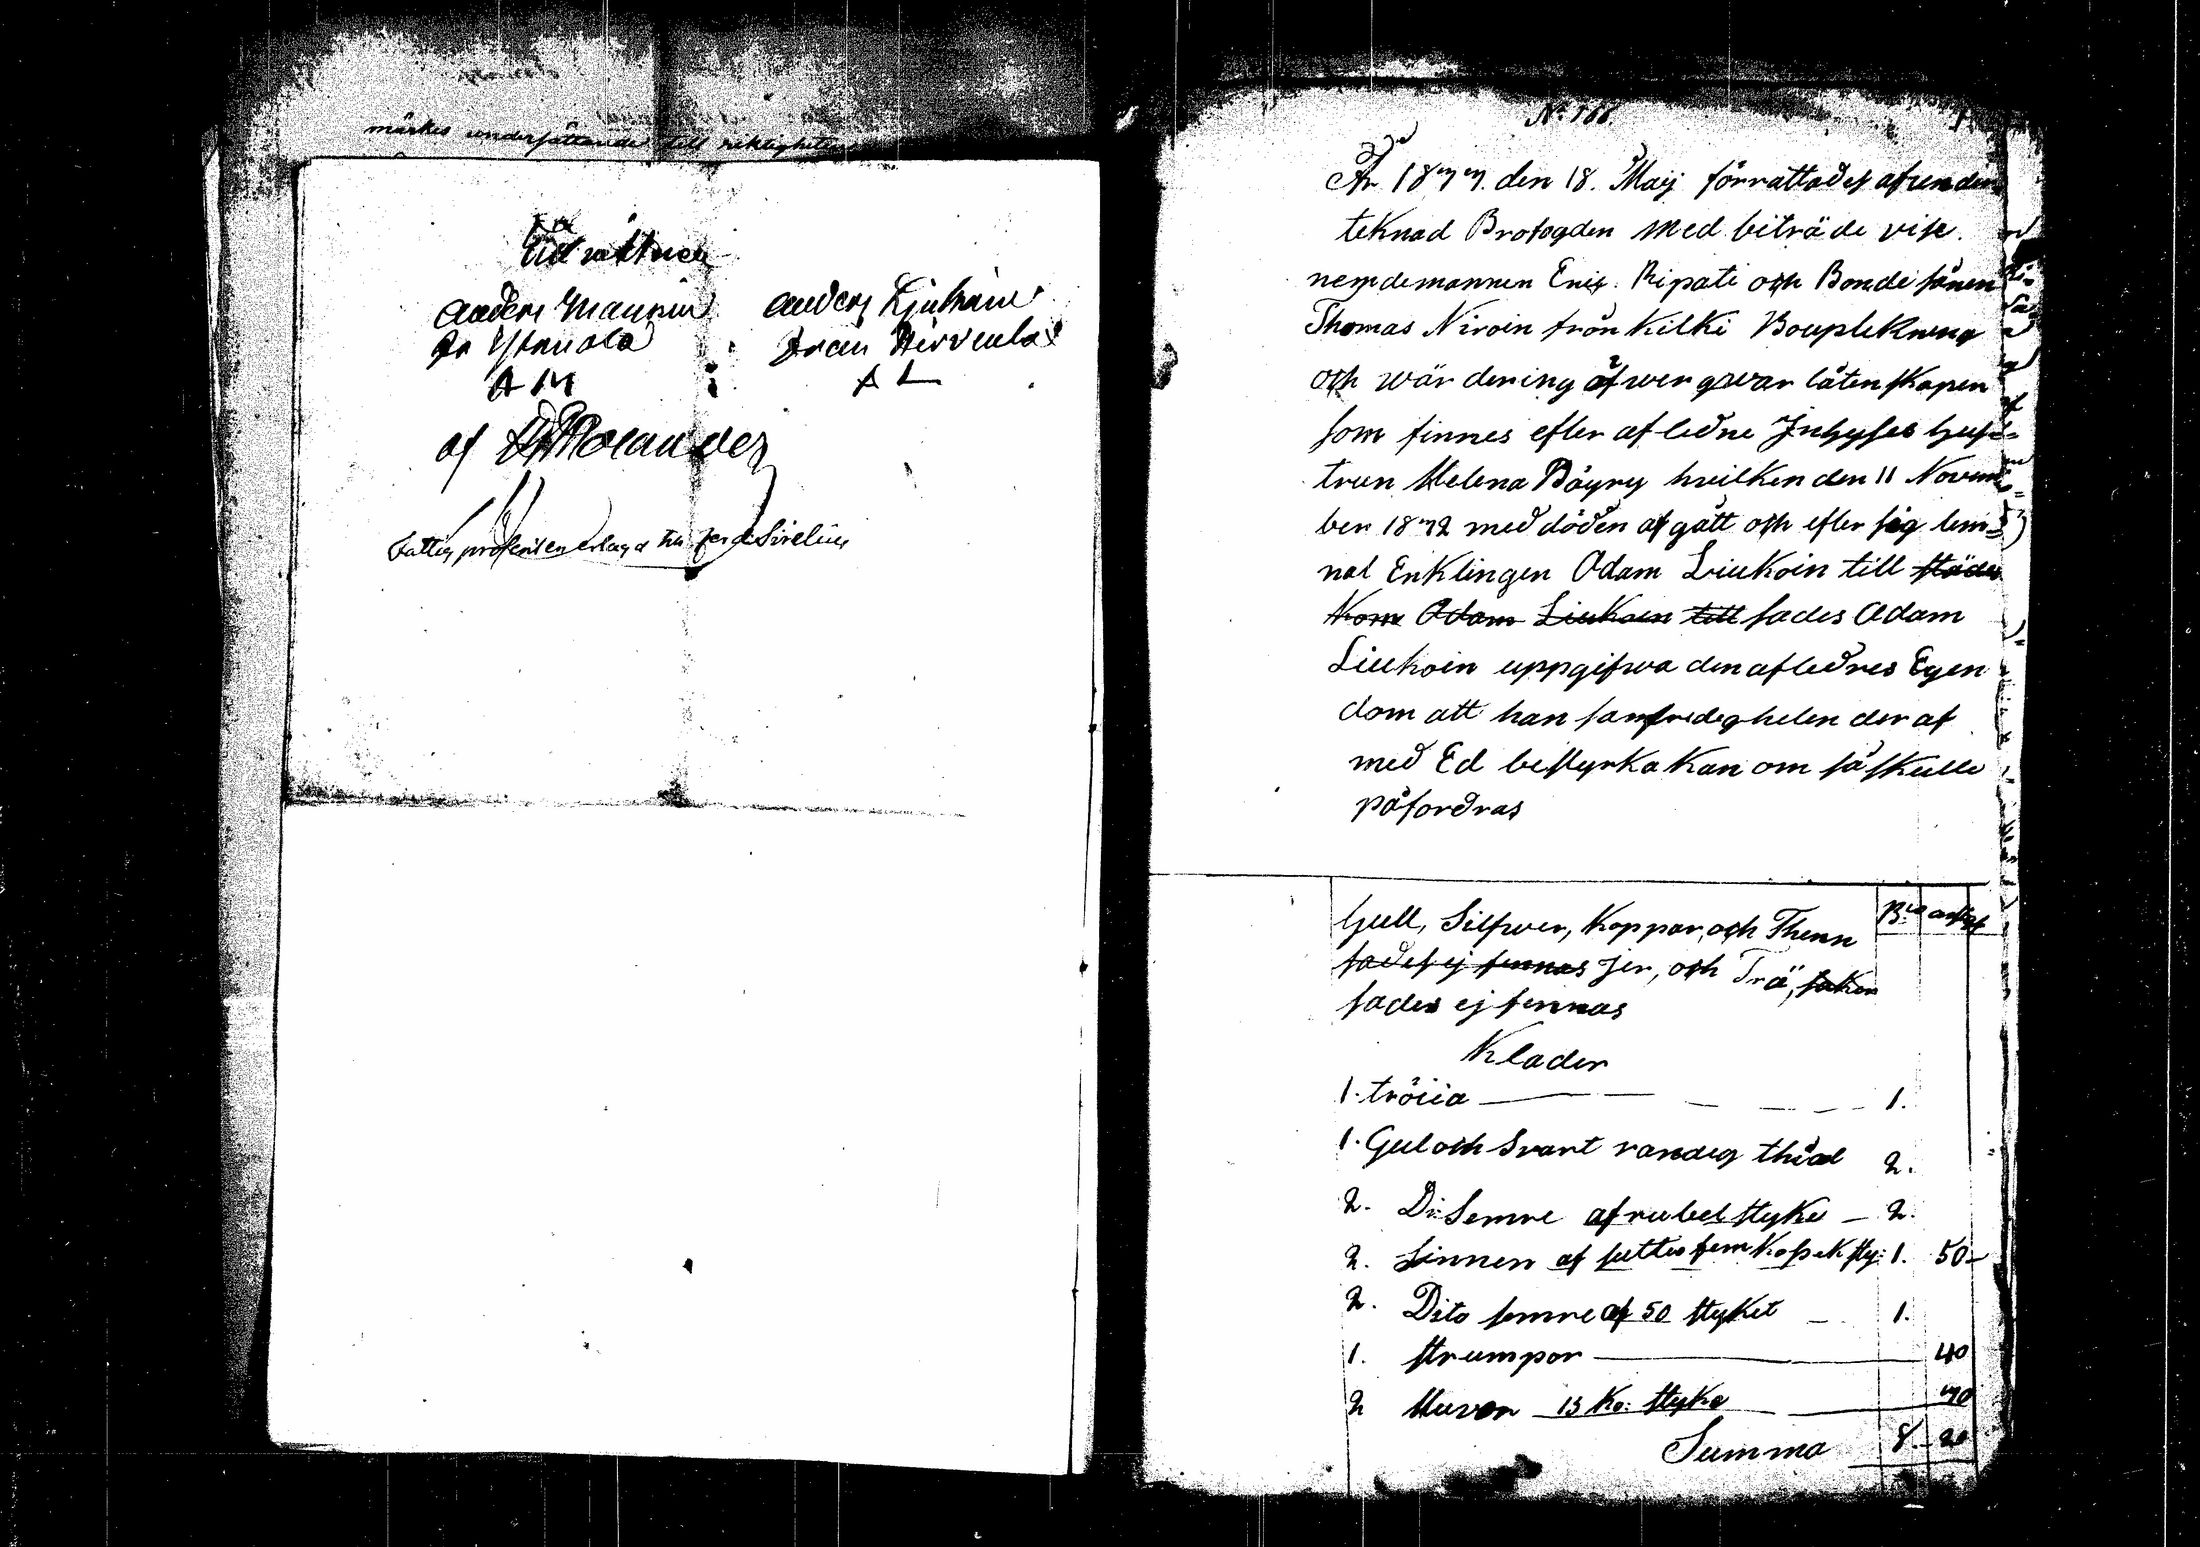 märkes undersättandes till riktigheten
till vittnen
Anders Maunin Anders Ljukain
fr Yläniala Från Hirvenla
A M A L
of
Fattig prosenten erlagd
No 166.
År 1877 den 18. Maij förrättades af undir
teknad Brofogden med biträde vise.
nemdemannen Eric. Ripati och Bonde sånen
Thomas Niroin från Kilki Boupleknung
och wärdering åfwer qwarlåtenskapen
som finnes efter afledne Inhyses hus=
trun Helena Päyry hvilken den 11 Novem=
ber 1872 med döden afgått och efter sig lem=
nat Enklingen Adam Liukoin till
Adam Liukoin till sades Adam
Liukoin uppgifwa den aflednes Egen
dom att han sanfredigheten der af
med Ed bestyrka kan om så skulle
påfordras
Gull, Silfwer, Koppar, och Thenn
sades ej finnas Jer, och Trä, saker
sades ej finnas
Klader
1. tröiia 1.
1. Gul och Svart randig 2.
2. D:o Semre af rubel styke 2.
2. Linnen af suttio fem Kopek sty: 1. 50
2. Dito semre af 50 styket 1.
1. strumpor 40
2 Huvor 15 Ko: styke
Summa 8 20